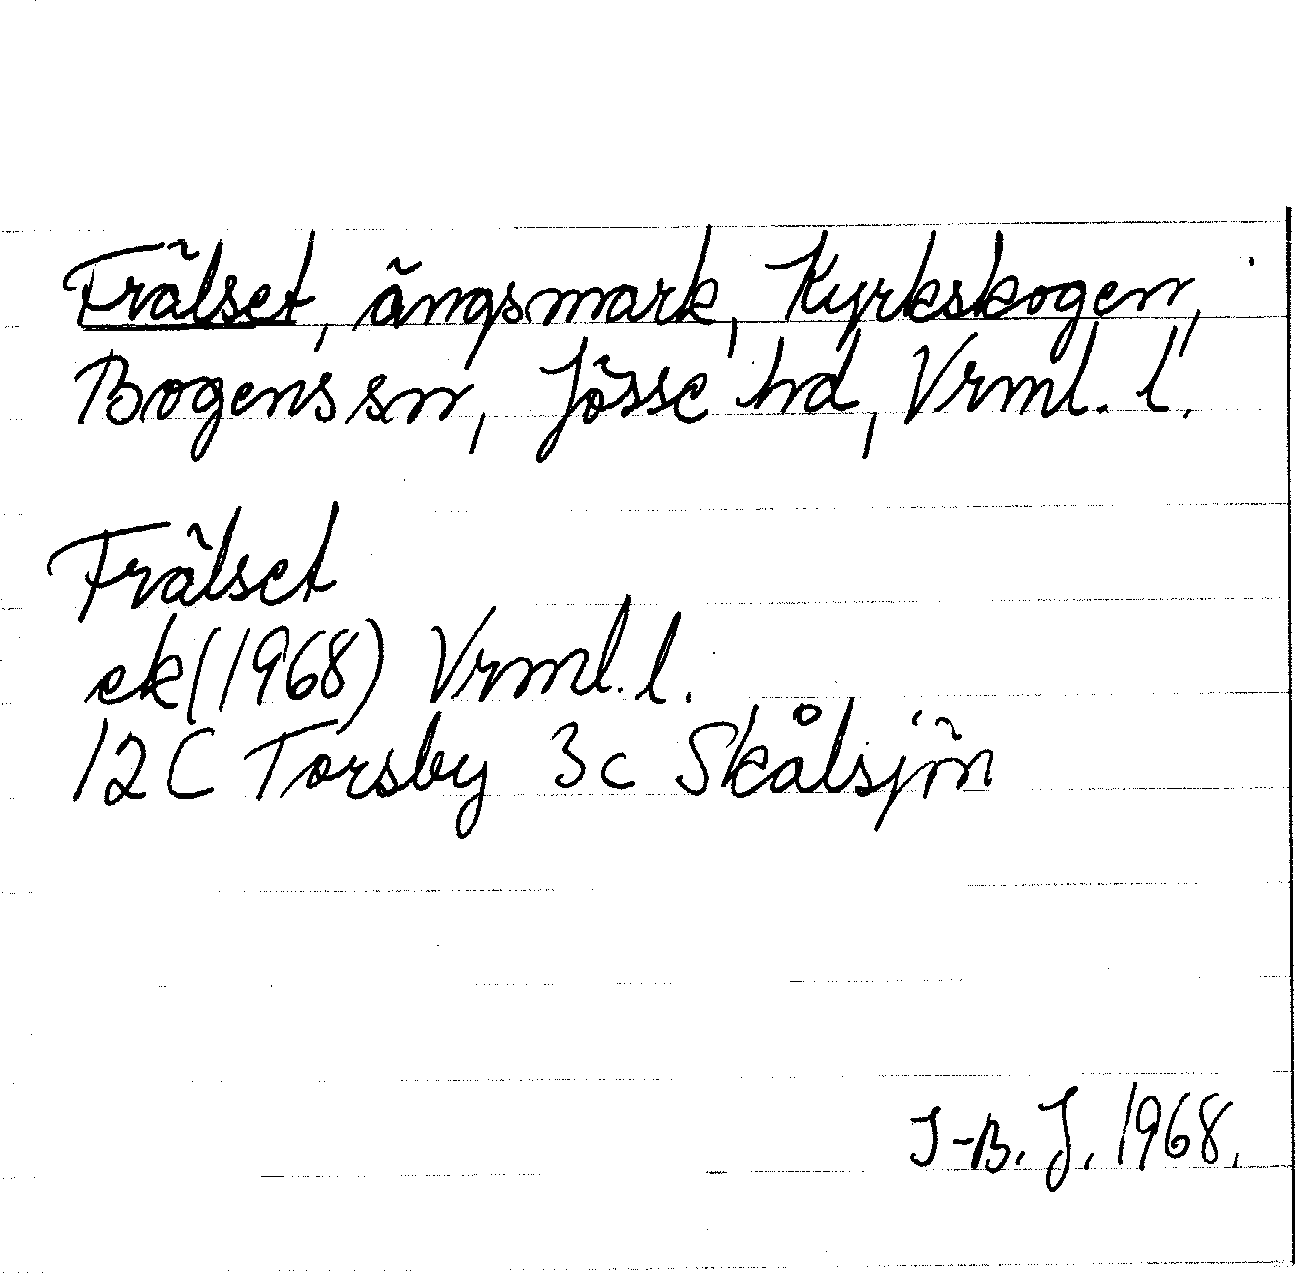 Frälset, ängsmark, Kyrkskogen,
Bogens sn, Jösse hd, Vrml. l.
Frälset
ek(1968) Vrml. l.
12C Torsby 3c Skålsjön
I-B. J. 1968.